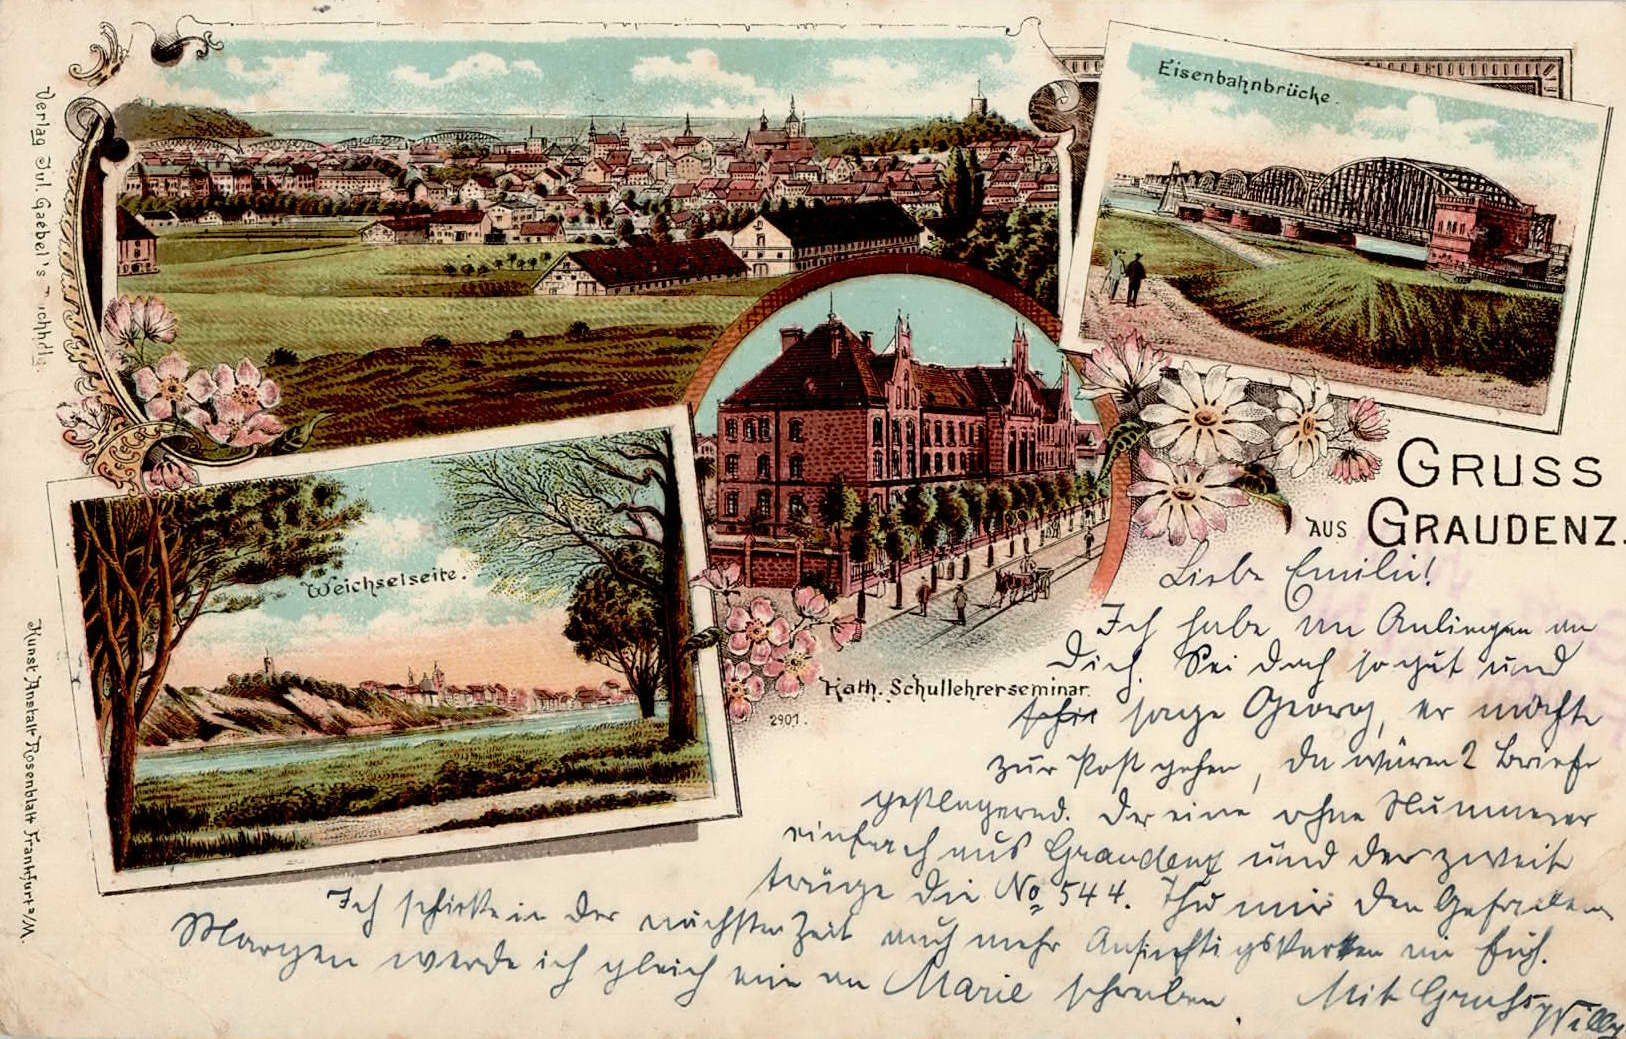 Eisenbahnbrücke.
Verlag Jul. Gaebel's Buchhdlg.
GRUSS
AUS GRAUDENZ.
Weichselseite.
Kath. Schullehrerseminar.
2901.
Kunst Anstalt Rosenblatt Frankfurt a/M.
Liebe Emilie!
Ich habe ein Anliegen an
Dich. Sei doch so gut und
sage Georg, er möchte
zur Post gehen, da wären 2 Briefe
postlagernd. Der eine ohne Nummer
einfach aus Graudenz und der zweite
trüge die No 544. Thu mir den Gefallen
Ich schicke in der nächsten Zeit auch mehr Ansichtskarten an Euch.
Morgen werde ich gleich eine an Marie schreiben. Mit Gruß Willy